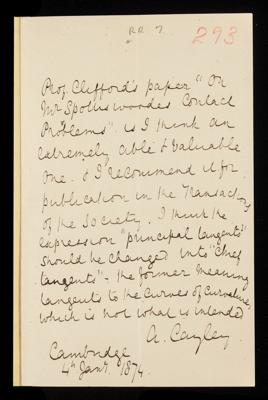 RR 7.
293
Prof. Clifford's paper "On
Mr Spottiswoodes Contact
Problems" is I think an
extremely able & valuable
one. & I recommend it for
publication in the Transactions
of the Society. I think the
expression "principal tangents"
should be changed into "chief
tangents" - the former meaning
tangents to the curves of curvature,
which is not what is intended
A. Cayley.
Cambridge
4th Jany. 1874.